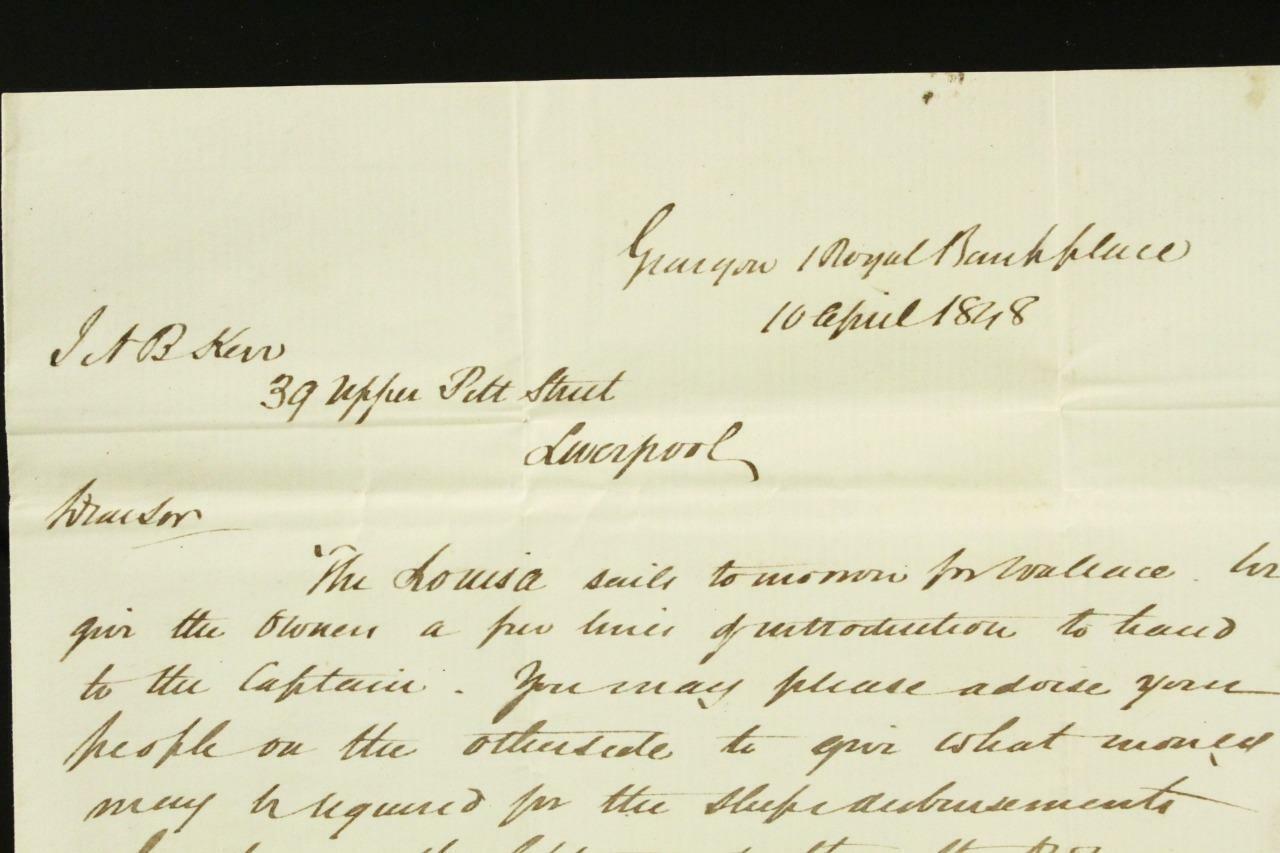 Glasgow 1 Royal Bank place
10 April 1848
J A B Kerr
39 Upper Pitt Street
Liverpool
Dear Sir
The Louisa sails tomorrow for Wallace. We
give the Owners a few lines of introduction to hand
to the Captain. You may please advise your
people on the otherside to give what money
may be required for the ships disbursements